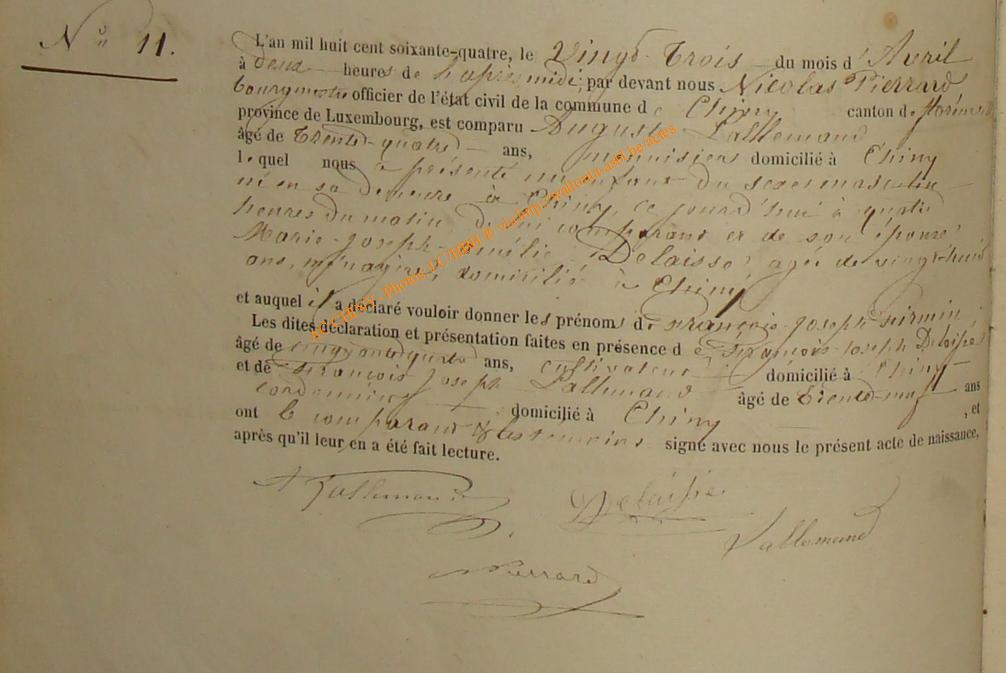 N° 11.
L'an mil huit cent soixante-quatre, le Vingt Trois du mois d'Avril
à deux heures de l'après midi, par devant nous Nicolas Pierrard
bourgmestre officier de l'état civil de la commune de Chiny canton de
province de Luxembourg, est comparu Auguste Lallemand
âgé de Trente-quatre ans, menuisier domicilié à Chiny
lequel nous a présenté un enfant du sexe masculin
né en sa demeure à Chiny, ce jourd'hui à quatre
heures du matin de lui comparant et de son épouse
Marie-Joseph- Delaisse agée de vingt-huit
ans, ménagère, domicilié à Chiny
et auquel il a déclaré vouloir donner les prénoms de François-Joseph Firmin
Les dites déclaration et présentation faites en présence de François-Joseph Delaisse
âgé de cinquante quatre ans, cultivateur domicilié à Chiny
et de François Joseph Lallemand âgé de trente-neuf ans
cordonnier domicilié à Chiny , et
ont le comparant & les témoins signé avec nous le présent acte de naissance,
après qu'il leur en a été fait lecture.
A Lallemand Delaisse
Lallemand
Pierrard